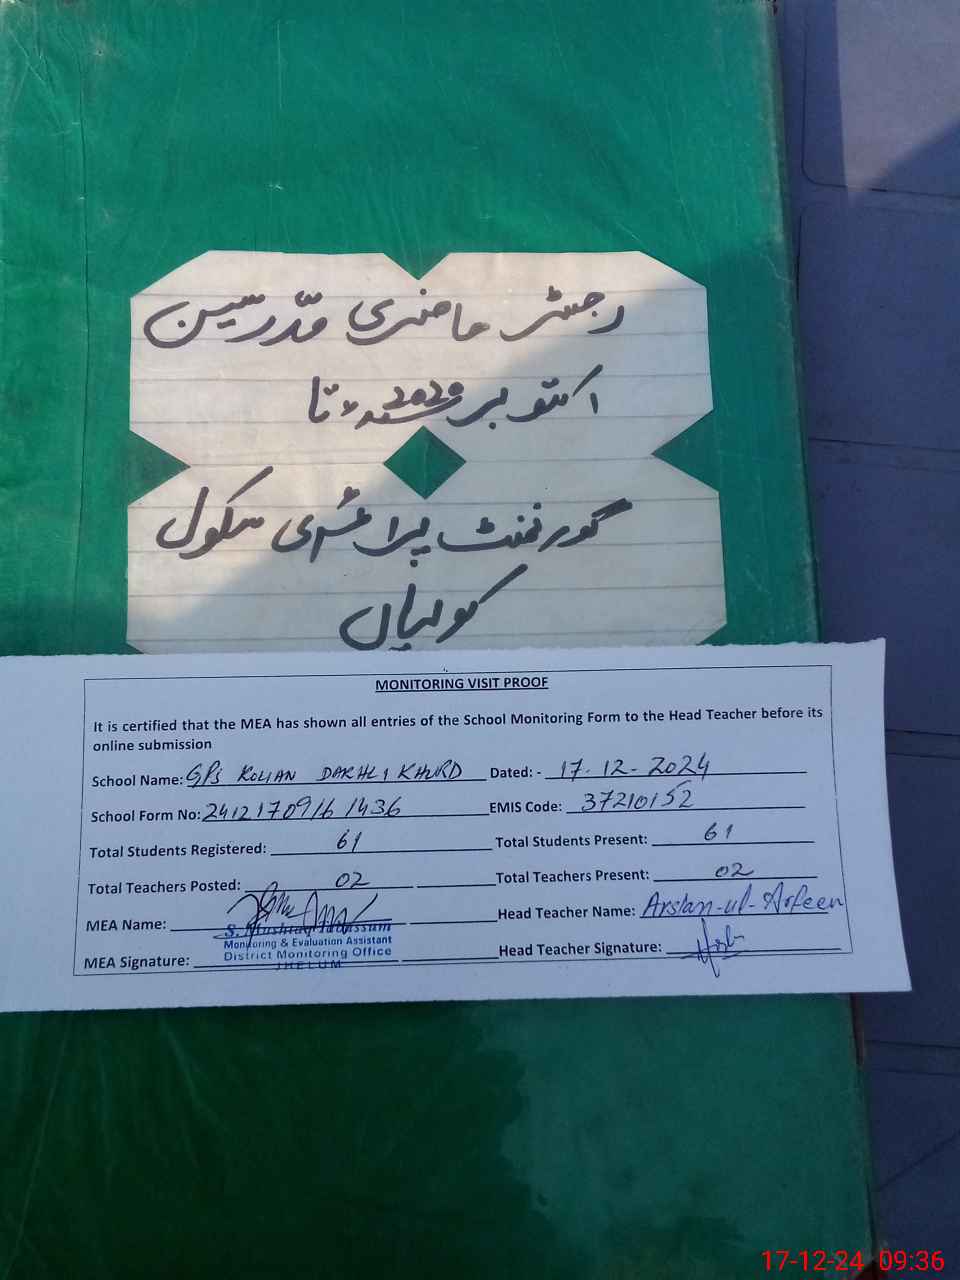 رجسٹر حاضری مدّرسین
اکتوبر 2020ء تا
گورنمنٹ پرائمری سکول
کولیاں
MONITORING VISIT PROOF
It is certified that the MEA has shown all entries of the School Monitoring Form to the Head Teacher before its
online submission
School Name: GPS KOLIAN DAKHLI KHURD Dated: - 17-12-2024
School Form No: 24121709161436 EMIS Code: 37210152
Total Students Registered: 61 Total Students Present: 61
Total Teachers Posted: 02 Total Teachers Present: 02
MEA Name: Head Teacher Name: Arslan-ul-Arfeen
Monitoring & Evaluation Assistant
District Monitoring Office
JHELUM
MEA Signature: Head Teacher Signature:
17-12-24 09:36